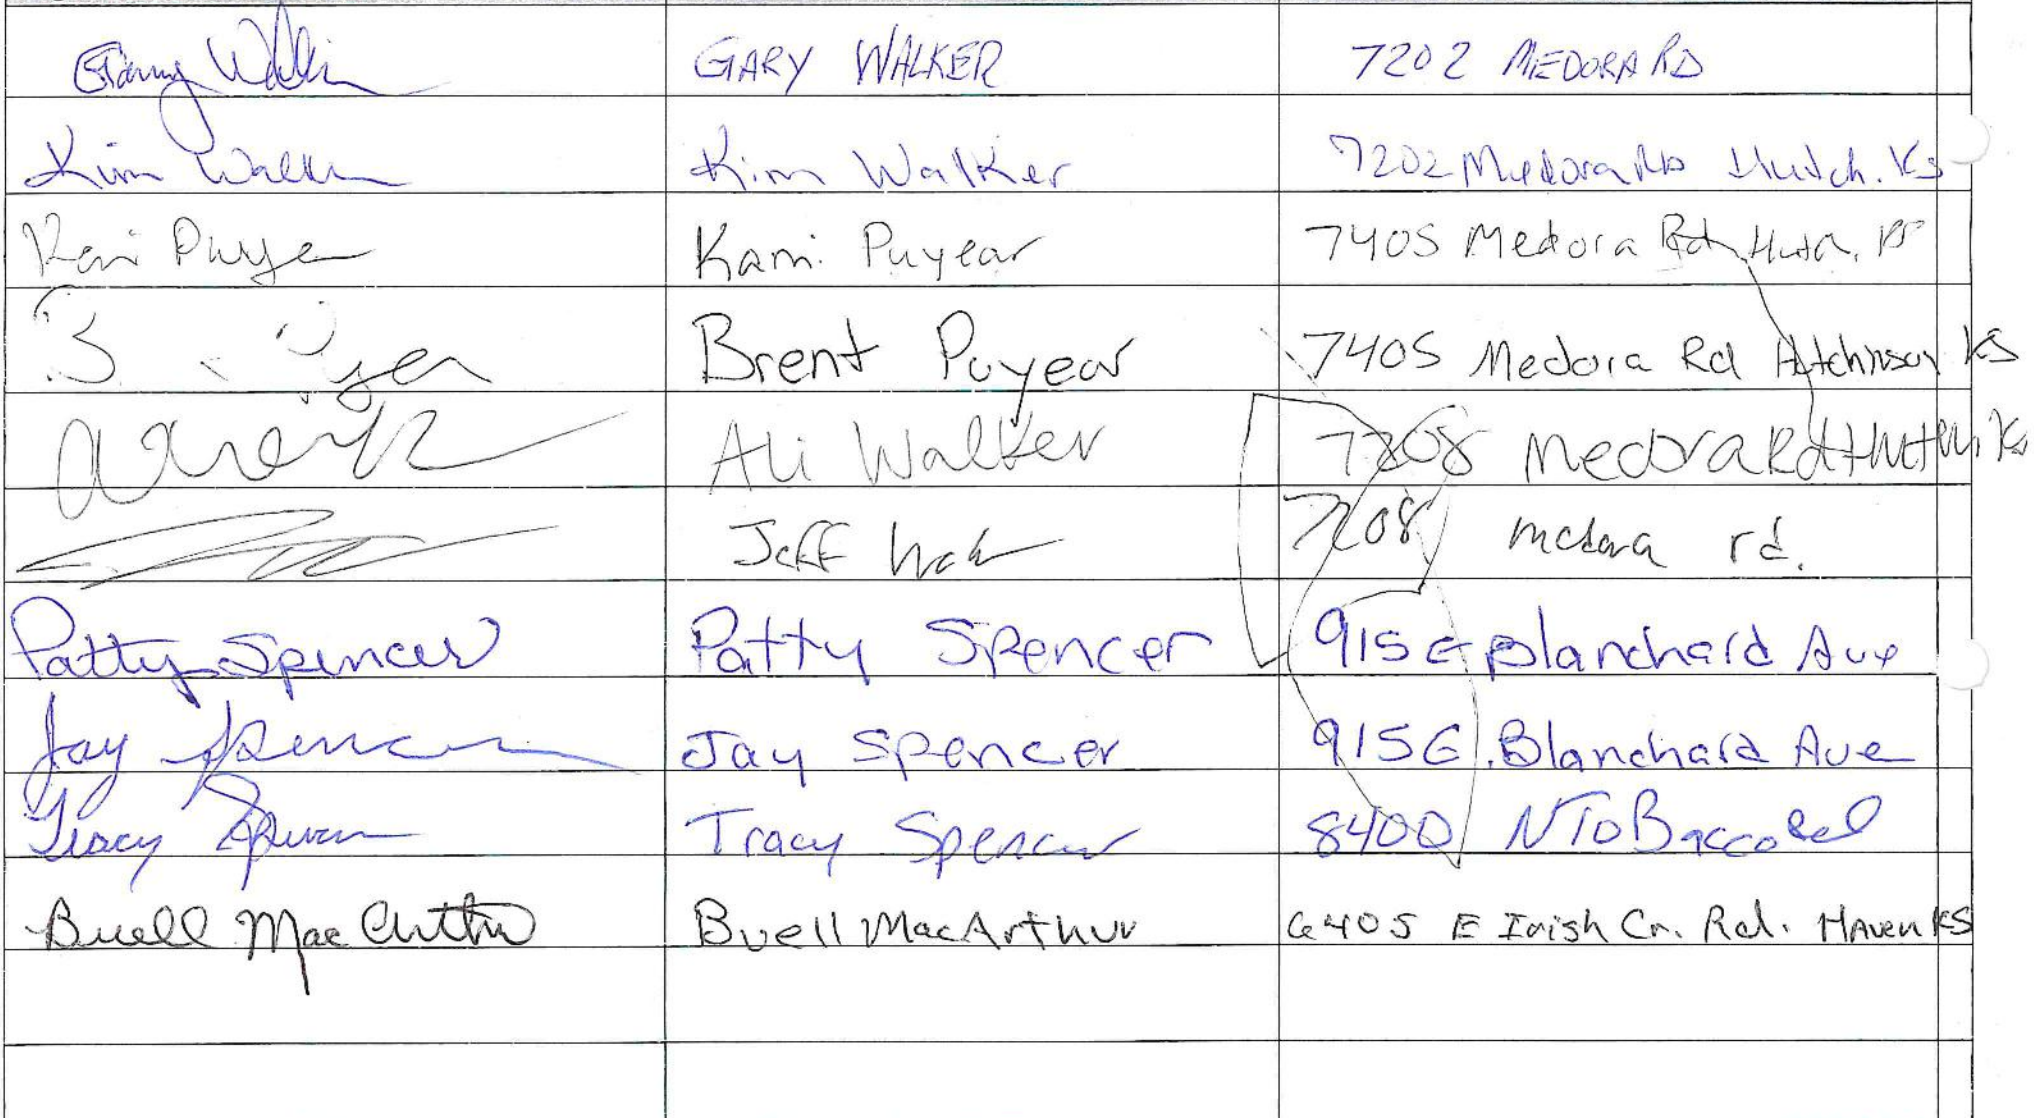 Gary Walker GARY WALKER 7202 MEDORA RD
Kim Walker Kim Walker 7202 Medora Rd Hutch. Ks
Kami Puyear Kami Puyear 7405 Medora Rd Hutch. KS
Brent Puyear 7405 Medora Rd Hutchinson KS
Ali Walker 7208 Medora Rd Hutch. Ks
Jeff 7208 medora rd.
Patty Spencer Patty Spencer 915 E Blanchard Ave
Jay Spencer Jay Spencer 915 E. Blanchard Ave
Tracy Spencer Tracy Spencer 8400 N ToBacco Rd
Buell MacArthur Buell MacArthur 6405 E Irish Cr. Rd. Haven KS